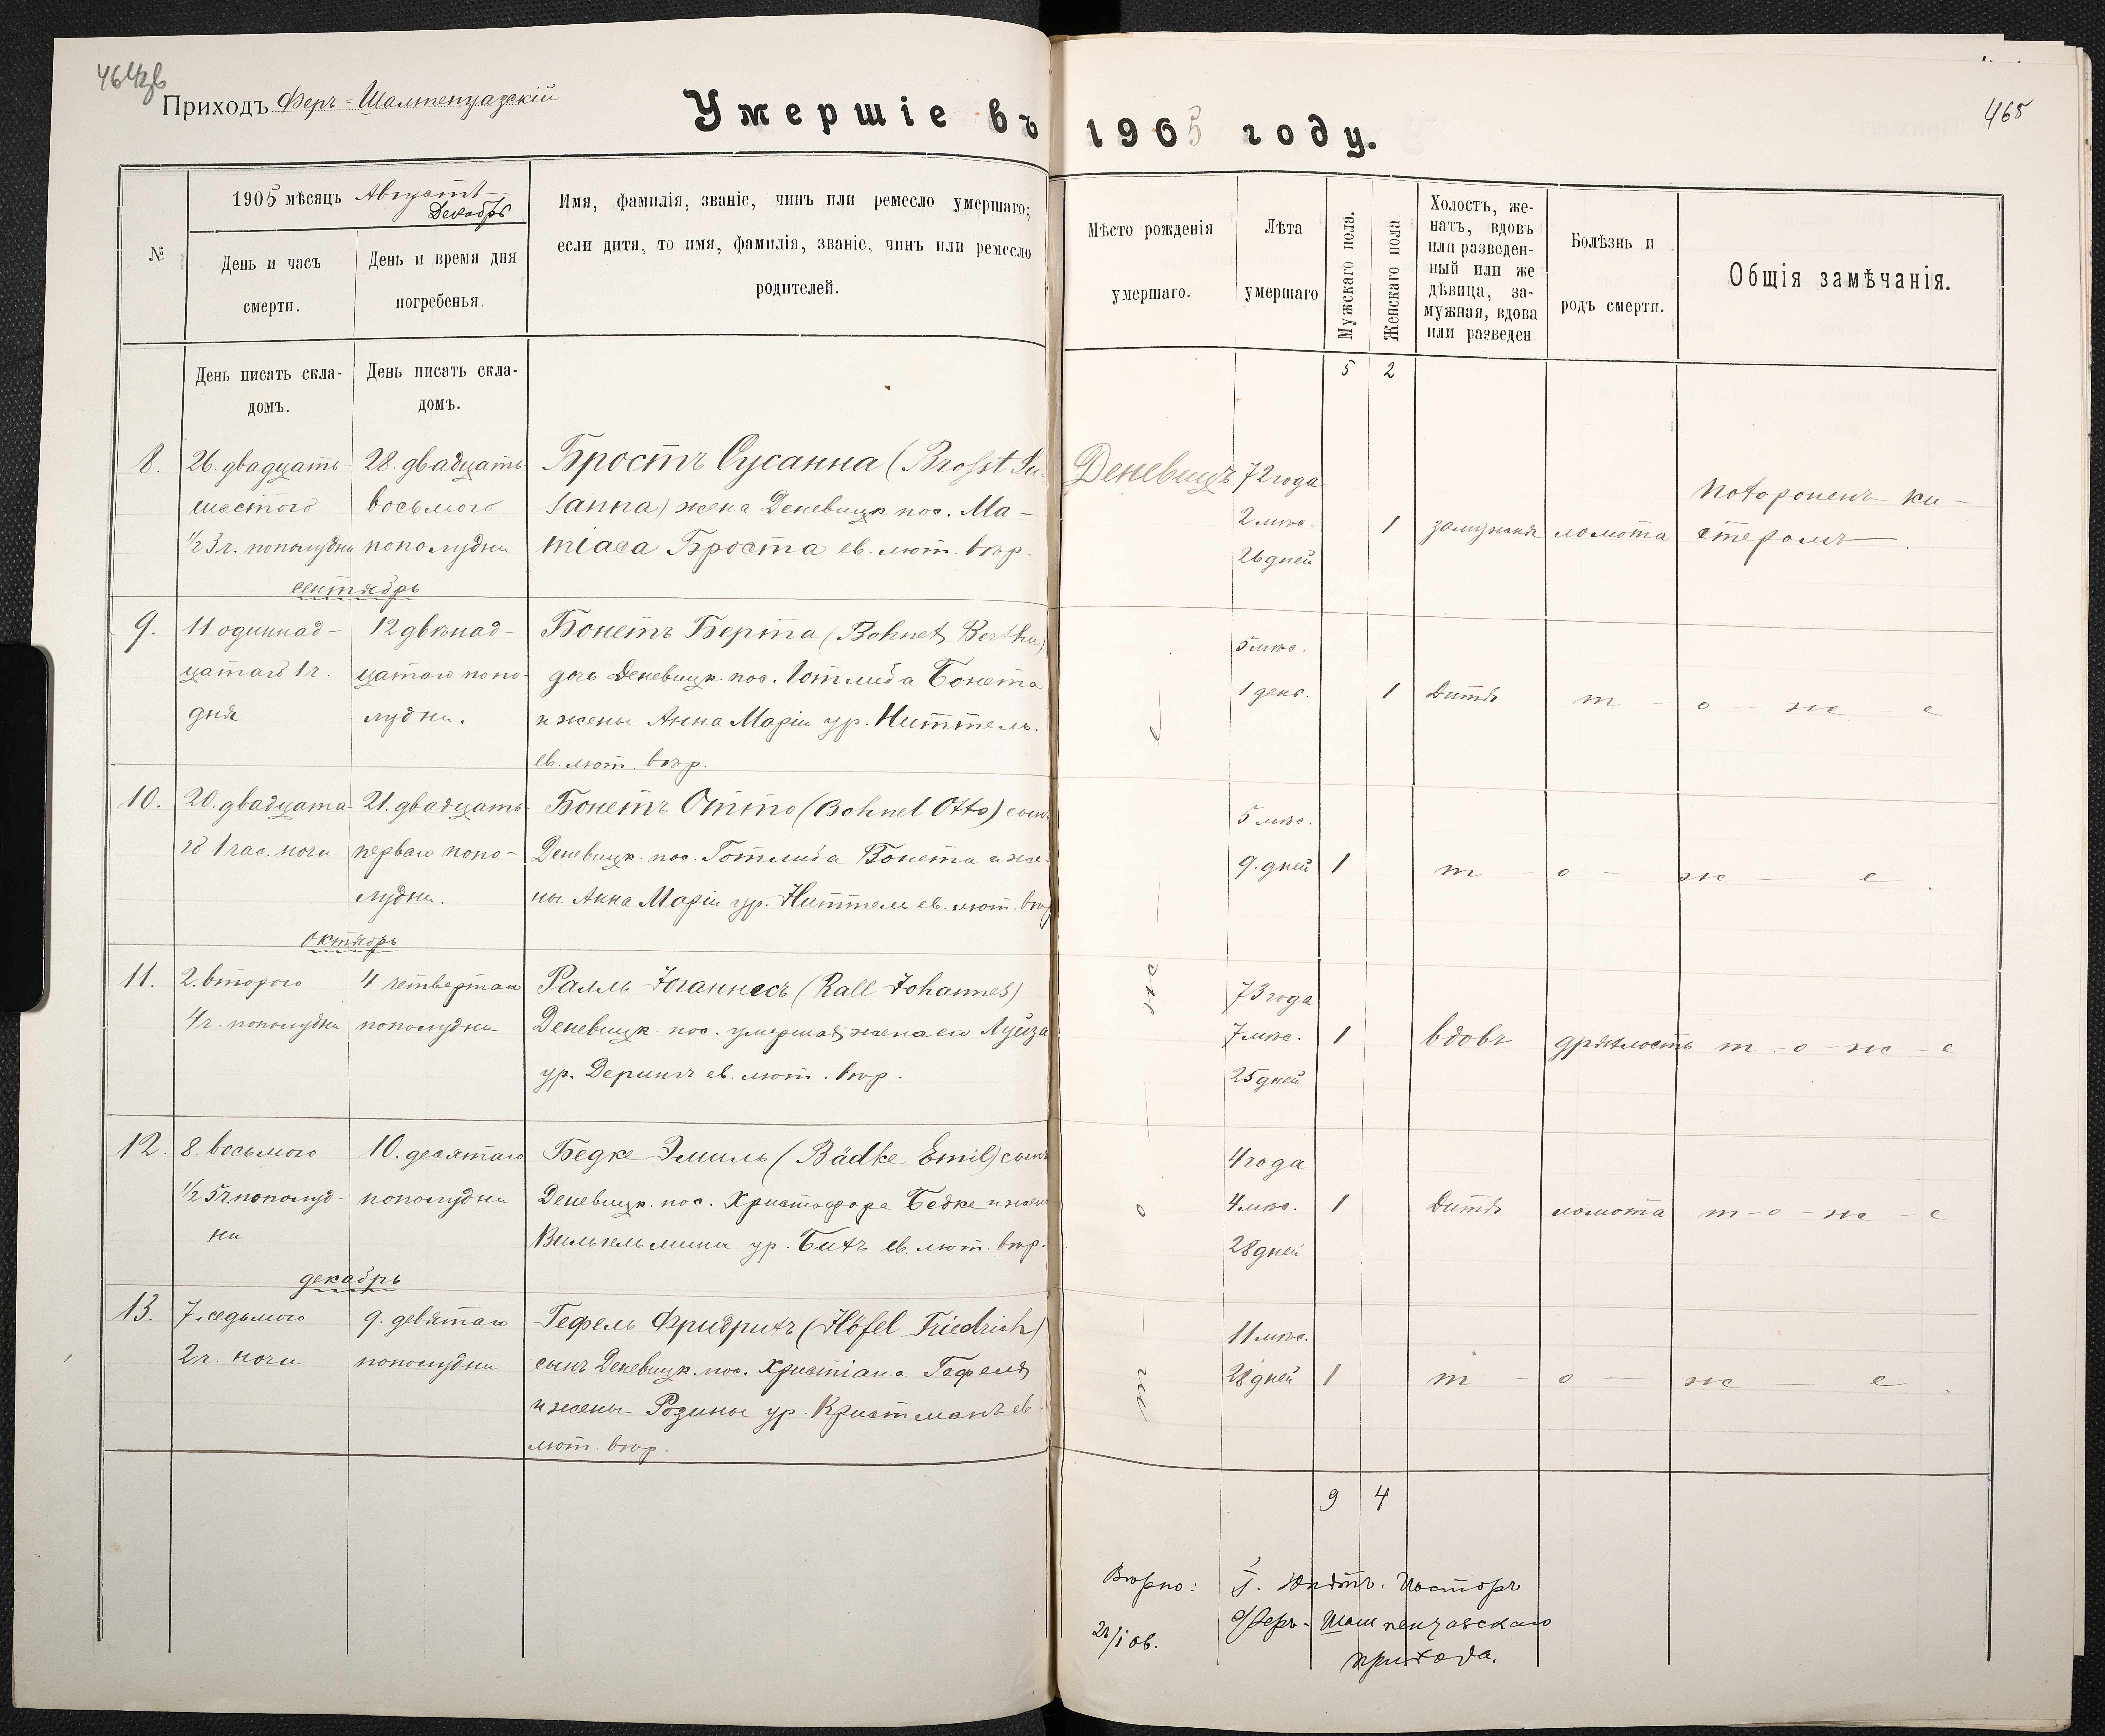 464
Приходъ Феръ-Шампенуазскій
Умершіе въ 1905 году.
465
№
1905 мѣсяцъ Августъ
Декабрь
День и часъ
смерти.
День и время дня
погребенья.
Имя, фамилія, званіе, чинъ или ремесло умершаго;
если дитя, то имя, фамилія, званіе, чинъ или ремесло
родителей.
Мѣсто рожденія
умершаго.
Лѣта
умершаго
Мужскаго пола.
Женскаго пола.
Холостъ, же-
натъ, вдовъ
или разведен-
ный или же
дѣвица, за-
мужная, вдова
или разведен.
Болѣзнь и
родъ смерти.
Общія замѣчанія.
День писать скла-
домъ.
День писать скла-
домъ.
5 2
8.
26. двадцать-
шестого
1/2 3 ч. пополудни
28. двадцать
восьмого
пополудни
Бростъ Сусанна (Brosst Su-
sanna) жена Деневицк. пос. Ма-
тіаса Броста ев. лют. вѣр.
Деневицъ
72 года
2 мѣс.
26 дней
1
замужняя
ломота
похороненъ ки-
стеромъ
сентябрь
9.
11. одиннад-
цатаго 1 ч.
дня
12 двѣнад-
цатаго попо-
лудни.
Бонетъ Берта (Bohnet Bertha)
дочь Деневицк. пос. Готлиба Бонета
и жены Анна Маріи ур. Ниттель.
ев. лют. вѣр.
5 мѣс.
1 день.
1
Дитя
т - о - же - е
10.
20. двадцата-
го 1 час. ночи
21. двадцать-
перваго попо-
лудни.
Бонетъ Отто (Bohnet Otto) сынъ
Деневицк. пос. Готлиба Бонета и же-
ны Анна Маріи ур. Ниттель ев. лют. вѣр.
5 мѣс.
9. дней
1
т - о - ж - е.
октябрь
11.
2. второго
4 ч. пополудни
4. четвертаго
пополудни
Ралль Іоганнесъ (Rall Johannes)
Деневицк. пос. умершая жена его Луиза
ур. Дерингъ ев. лют. вѣр.
73 года
7 мѣс.
25 дней
1
вдовъ
дряхлость
т - о - ж - е
12.
8. восьмого
1/2 5 ч. пополуд-
ни
10. десятаго
пополудни
Бедке Эмиль (Bädke Emil) сынъ
Деневицк. пос. Христофора Бедке и жены
Вильгельмины ур. Бихъ ев. лют. вѣр.
4 года
4 мѣс.
28 дней
1
Дитя
ломота
т - о - ж - е
декабрь
13.
7. седьмого
2 ч. ночи
9. девятаго
пополудни
Гефель Фридрихъ (Höfel Friedrich)
сынъ Деневицк. пос. Христіана Гефеля
и жены Розины ур. Кристманъ ев.
лют. вѣр.
11 мѣс.
28 дней
1
т - о - ж - е.
т - о - ж - е
9 4
Вѣрно:
Пасторъ
Феръ-Шампенуазскаго
прихода.